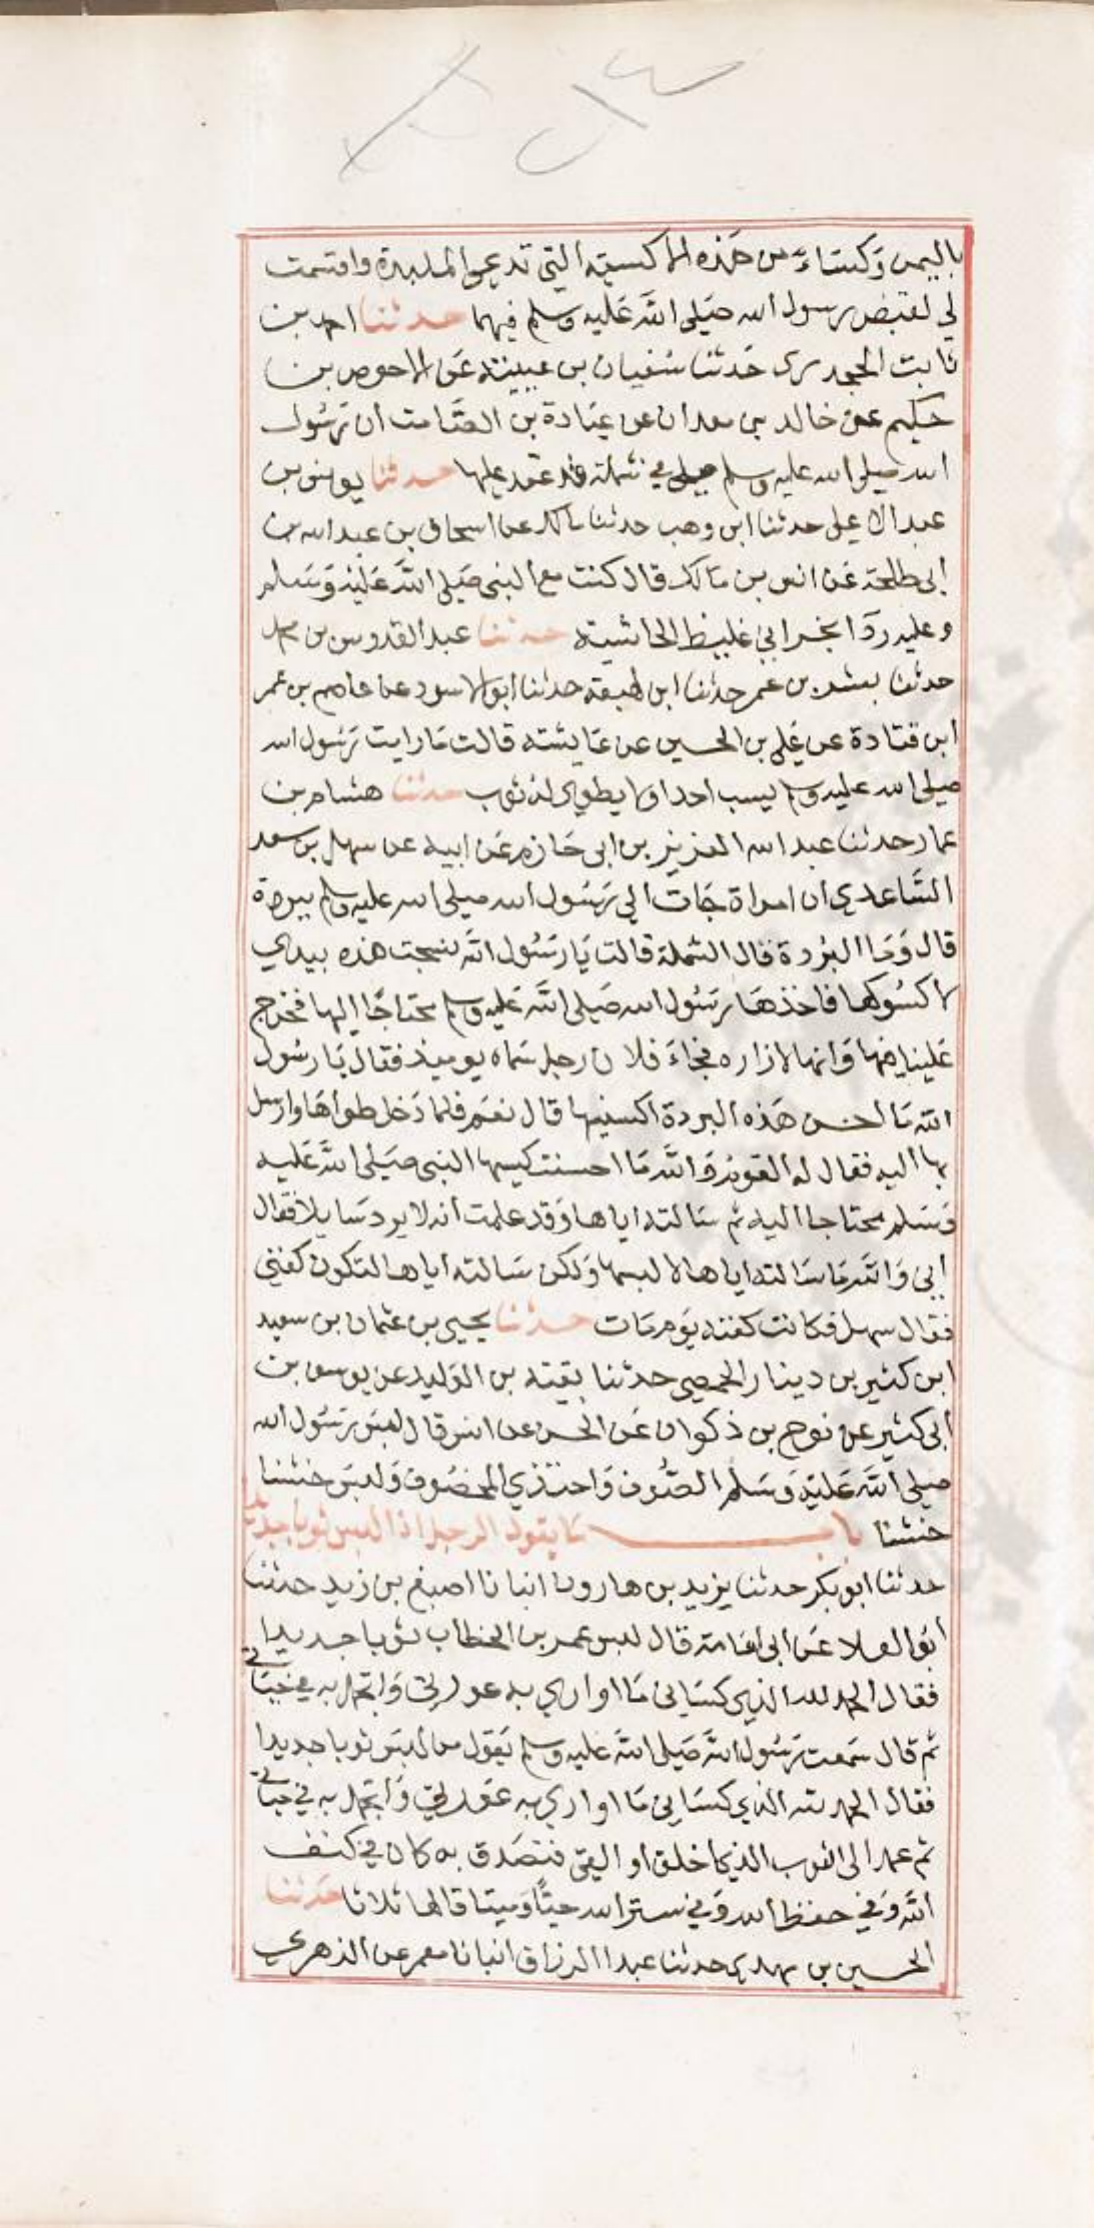 باليمن وكساء من هذه الاكسية التي تدعى الملبدة واقسمت
لي لقبض رسول الله صلى الله عليه وسلم فيهما حدثنا احمد بن
ثابت الجحدري حدثنا سفيان بن عيينة عن الاحوص بن
حكيم عن خالد بن معدان عن عبادة بن الصامت ان رسول
الله صلى الله عليه وسلم صلى في شملة قد عقد عليها حدثنا يونس بن
عبد الاعلى حدثنا ابن وهب حدثنا مالك عن اسحاق بن عبد الله بن
ابي طلحة عن انس بن مالك قال كنت مع النبي صلى الله عليه وسلم
وعليه ردآ نجراني غليظ الحاشية حدثنا عبد القدوس بن محمد
حدثنا بشر بن عمر حدثنا ابن لهيعة حدثنا ابو الاسود عن عاصم بن عمر
ابن قتادة عن علي بن الحسين عن عايشة قالت ما رايت رسول الله
صلى الله عليه وسلم يسب احدا ولا يطوى له ثوب حدثنا هشام بن
عمار حدثنا عبد الله العزيز بن ابي حازم عن ابيه عن سهل بن سعد
الساعدي ان امراة جات الي رسول الله صلى الله عليه وسلم ببردة
قال وما البردة قال الشملة قالت يا رسول الله نسجت هذه بيدي
لاكسوكها فاخذها رسول الله صلى الله عليه وسلم محتاجا اليها فخرج
علينا فيها وانها لازاره فجاء فلان رجل سماه يوميذ فقال يا رسول
الله ما احسن هذه البردة اكسنيها قال نعم فلما دخل طواها وارسل
بها اليه فقال له القوم والله ما احسنت كسيها النبي صلى الله عليه
وسلم محتاجا اليه ثم سالته اياها وقد علمت انه لا يرد سايلا فقال
اني والله ما سالته اياها لالبسها ولكن سالته اياها لتكون كفني
فقال سهل فكانت كفنه يوم مات حدثنا يحيى بن عثمان بن سعيد
ابن كثير بن دينار الحمصي حدثنا بقية بن الوليد عن يوسف بن
ابي كثير عن نوح بن ذكوان عن الحسن عن انس قال لبس رسول الله
صلى الله عليه وسلم الصوف واحتذي المخصوف ولبس خشنا
خشنا باب ما يقول الرجل اذا لبس ثوبا جديدا
حدثنا ابو بكر حدثنا يزيد بن هارون انبانا اصبغ بن زيد حدثنا
ابو العلا عن ابي امامة قال لبس عمر بن الخطاب ثوبا جديدا
فقال الحمد لله الذي كساني ما اواري به عورتي واتجمل به في حياتي
ثم قال سمعت رسول الله صلى الله عليه وسلم يقول من لبس ثوبا جديدا
فقال الحمد لله الذي كساني ما اواري به عورتي واتجمل به في حياتي
ثم عمد الى الثوب الذي اخلق او القي فتصدق به كان في كنف
الله وفي حفظ الله وفي ستر الله حيا وميتا قالها ثلاثا حدثنا
الحسين بن مهدي حدثنا عبد الرزاق انبانا معمر عن الزهري